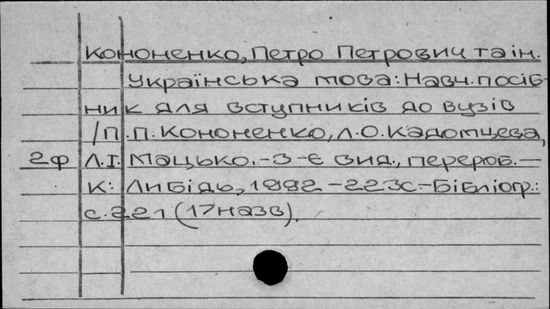 Кононенко, Петро Петрович та ін.
Українська мова: Навч. посіб-
ник для вступників до вузів
/П.П. Кононенко, Л.О. Кадомцева,
2ф Л.І. Мацько. -3-є вид., перероб. –
К: Либідь, 1992 - 223с.- Бібліогр.:
с. 221 (17 назв).